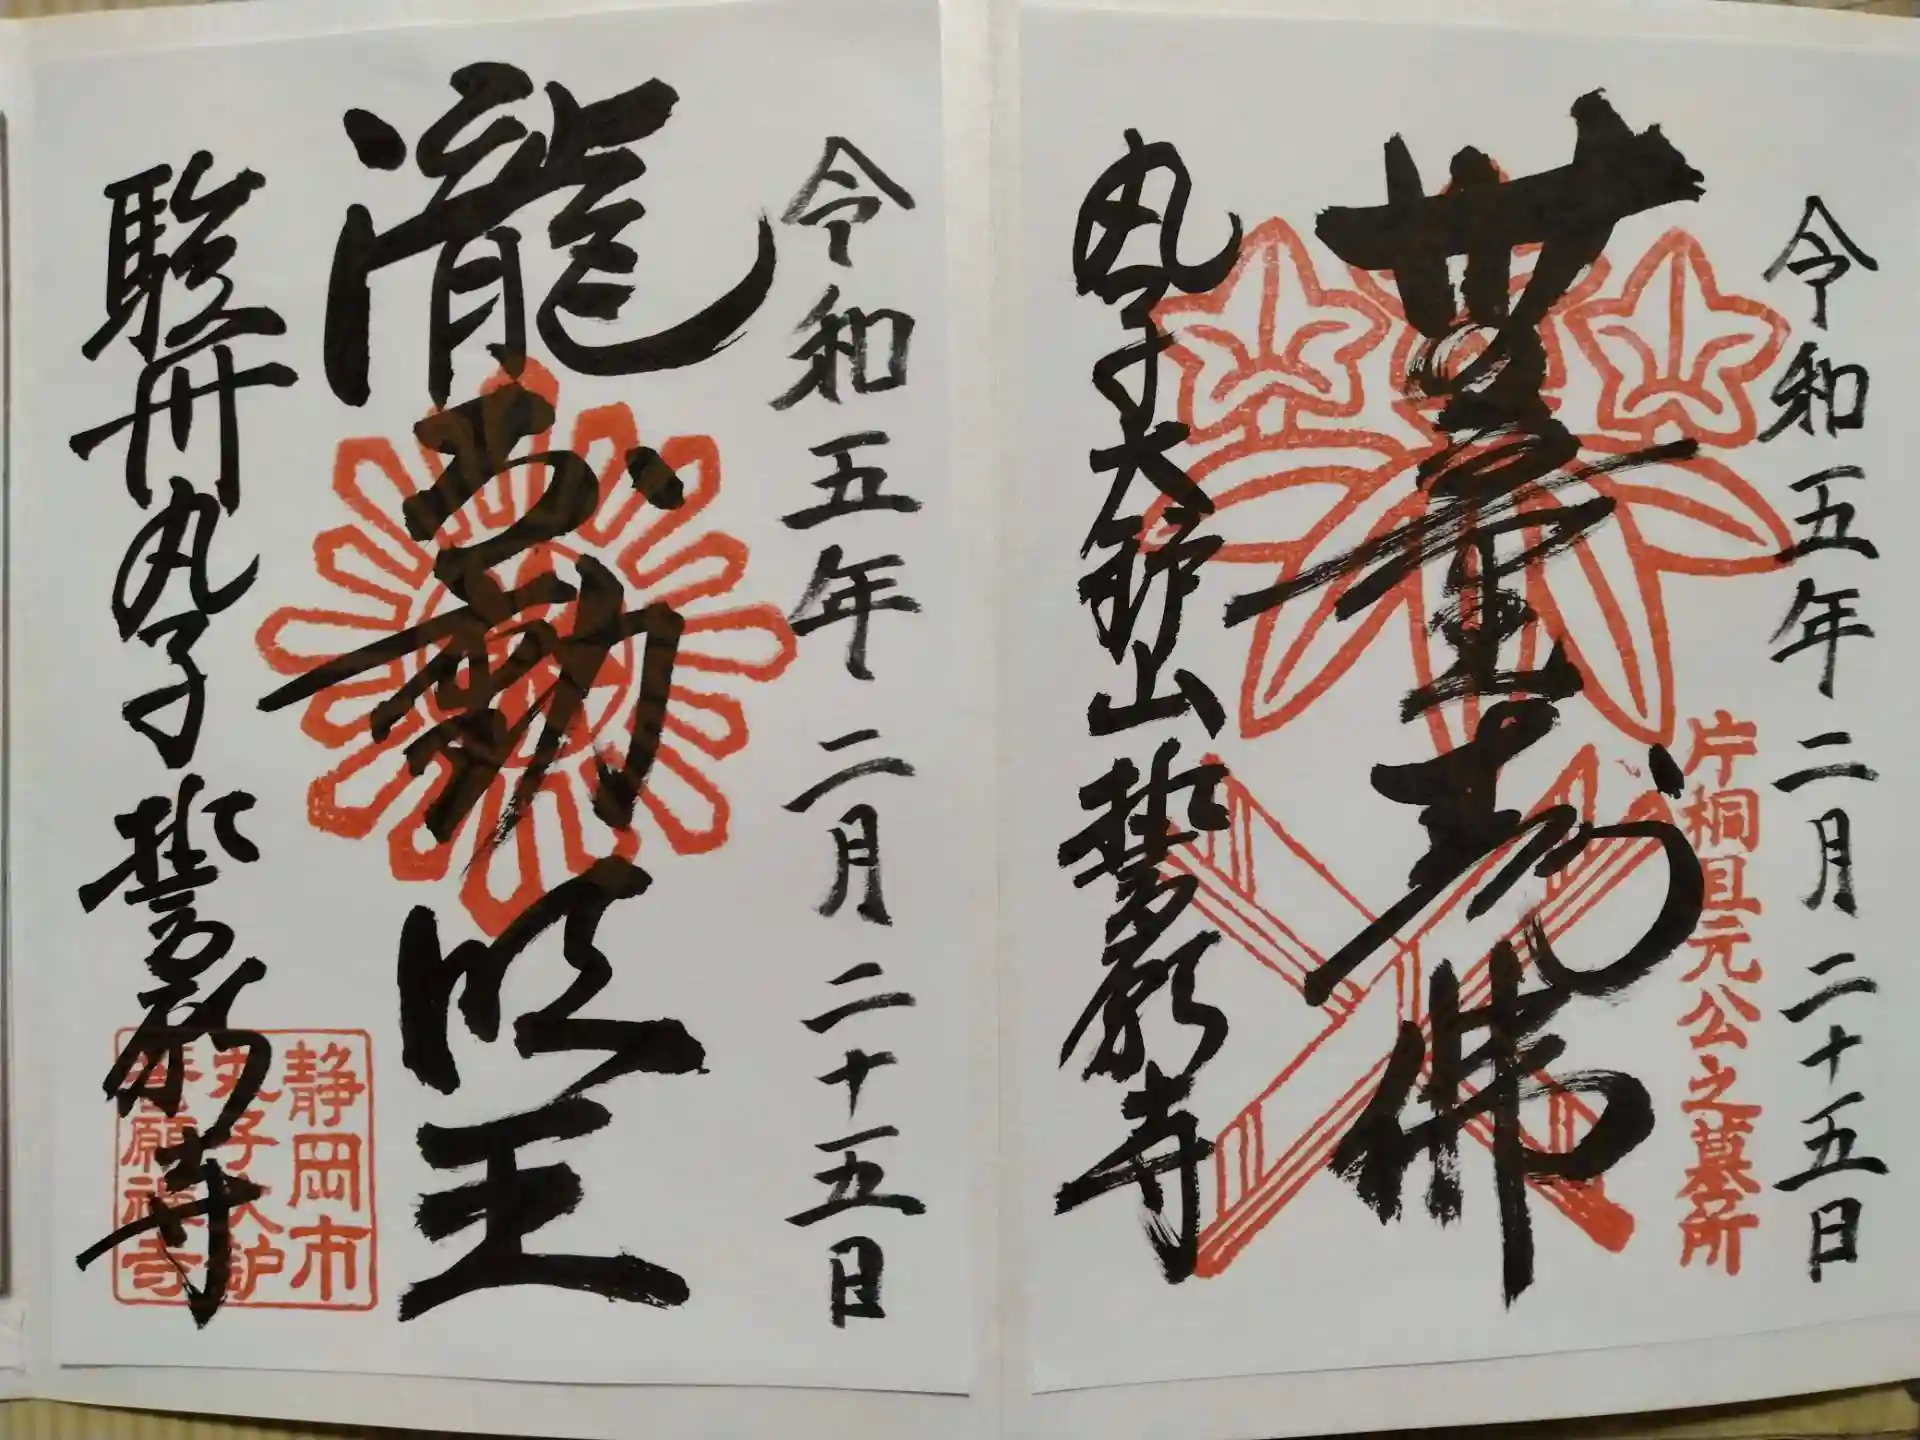 令和五年二月二十五日
片桐且元公之墓所
無量壽佛
丸子大鈩山誓願寺
令和五年二月二十五日
瀧不動明王
駿州丸子誓願寺
静岡市
丸子大鈩
誓願禅寺